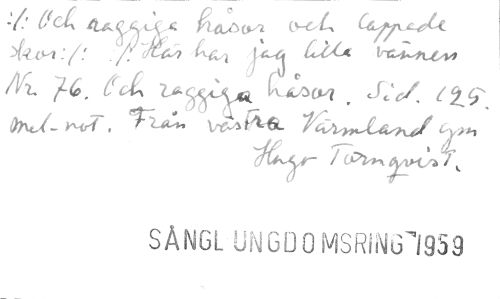 :/: Och raggiga håsor och lappade
skor:/: :/: Här har jag lilla vännen
Nr. 76. Och raggiga håsor. Sid. 125.
mel-not. Från västra Värmland gm
Hugo Törnqvist.
SÅNGL UNGDOMSRING 1959